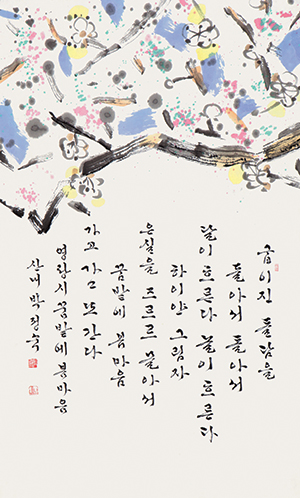 굽이진 돌담을
돌아서 돌아서
달이 흐른다 놀이 흐른다
하이얀 그림자
은실을 즈르르 몰아서
꿈밭에 봄마음
가고 가고 또 간다
영랑시 꿈밭에 봄마음
산내 박정숙